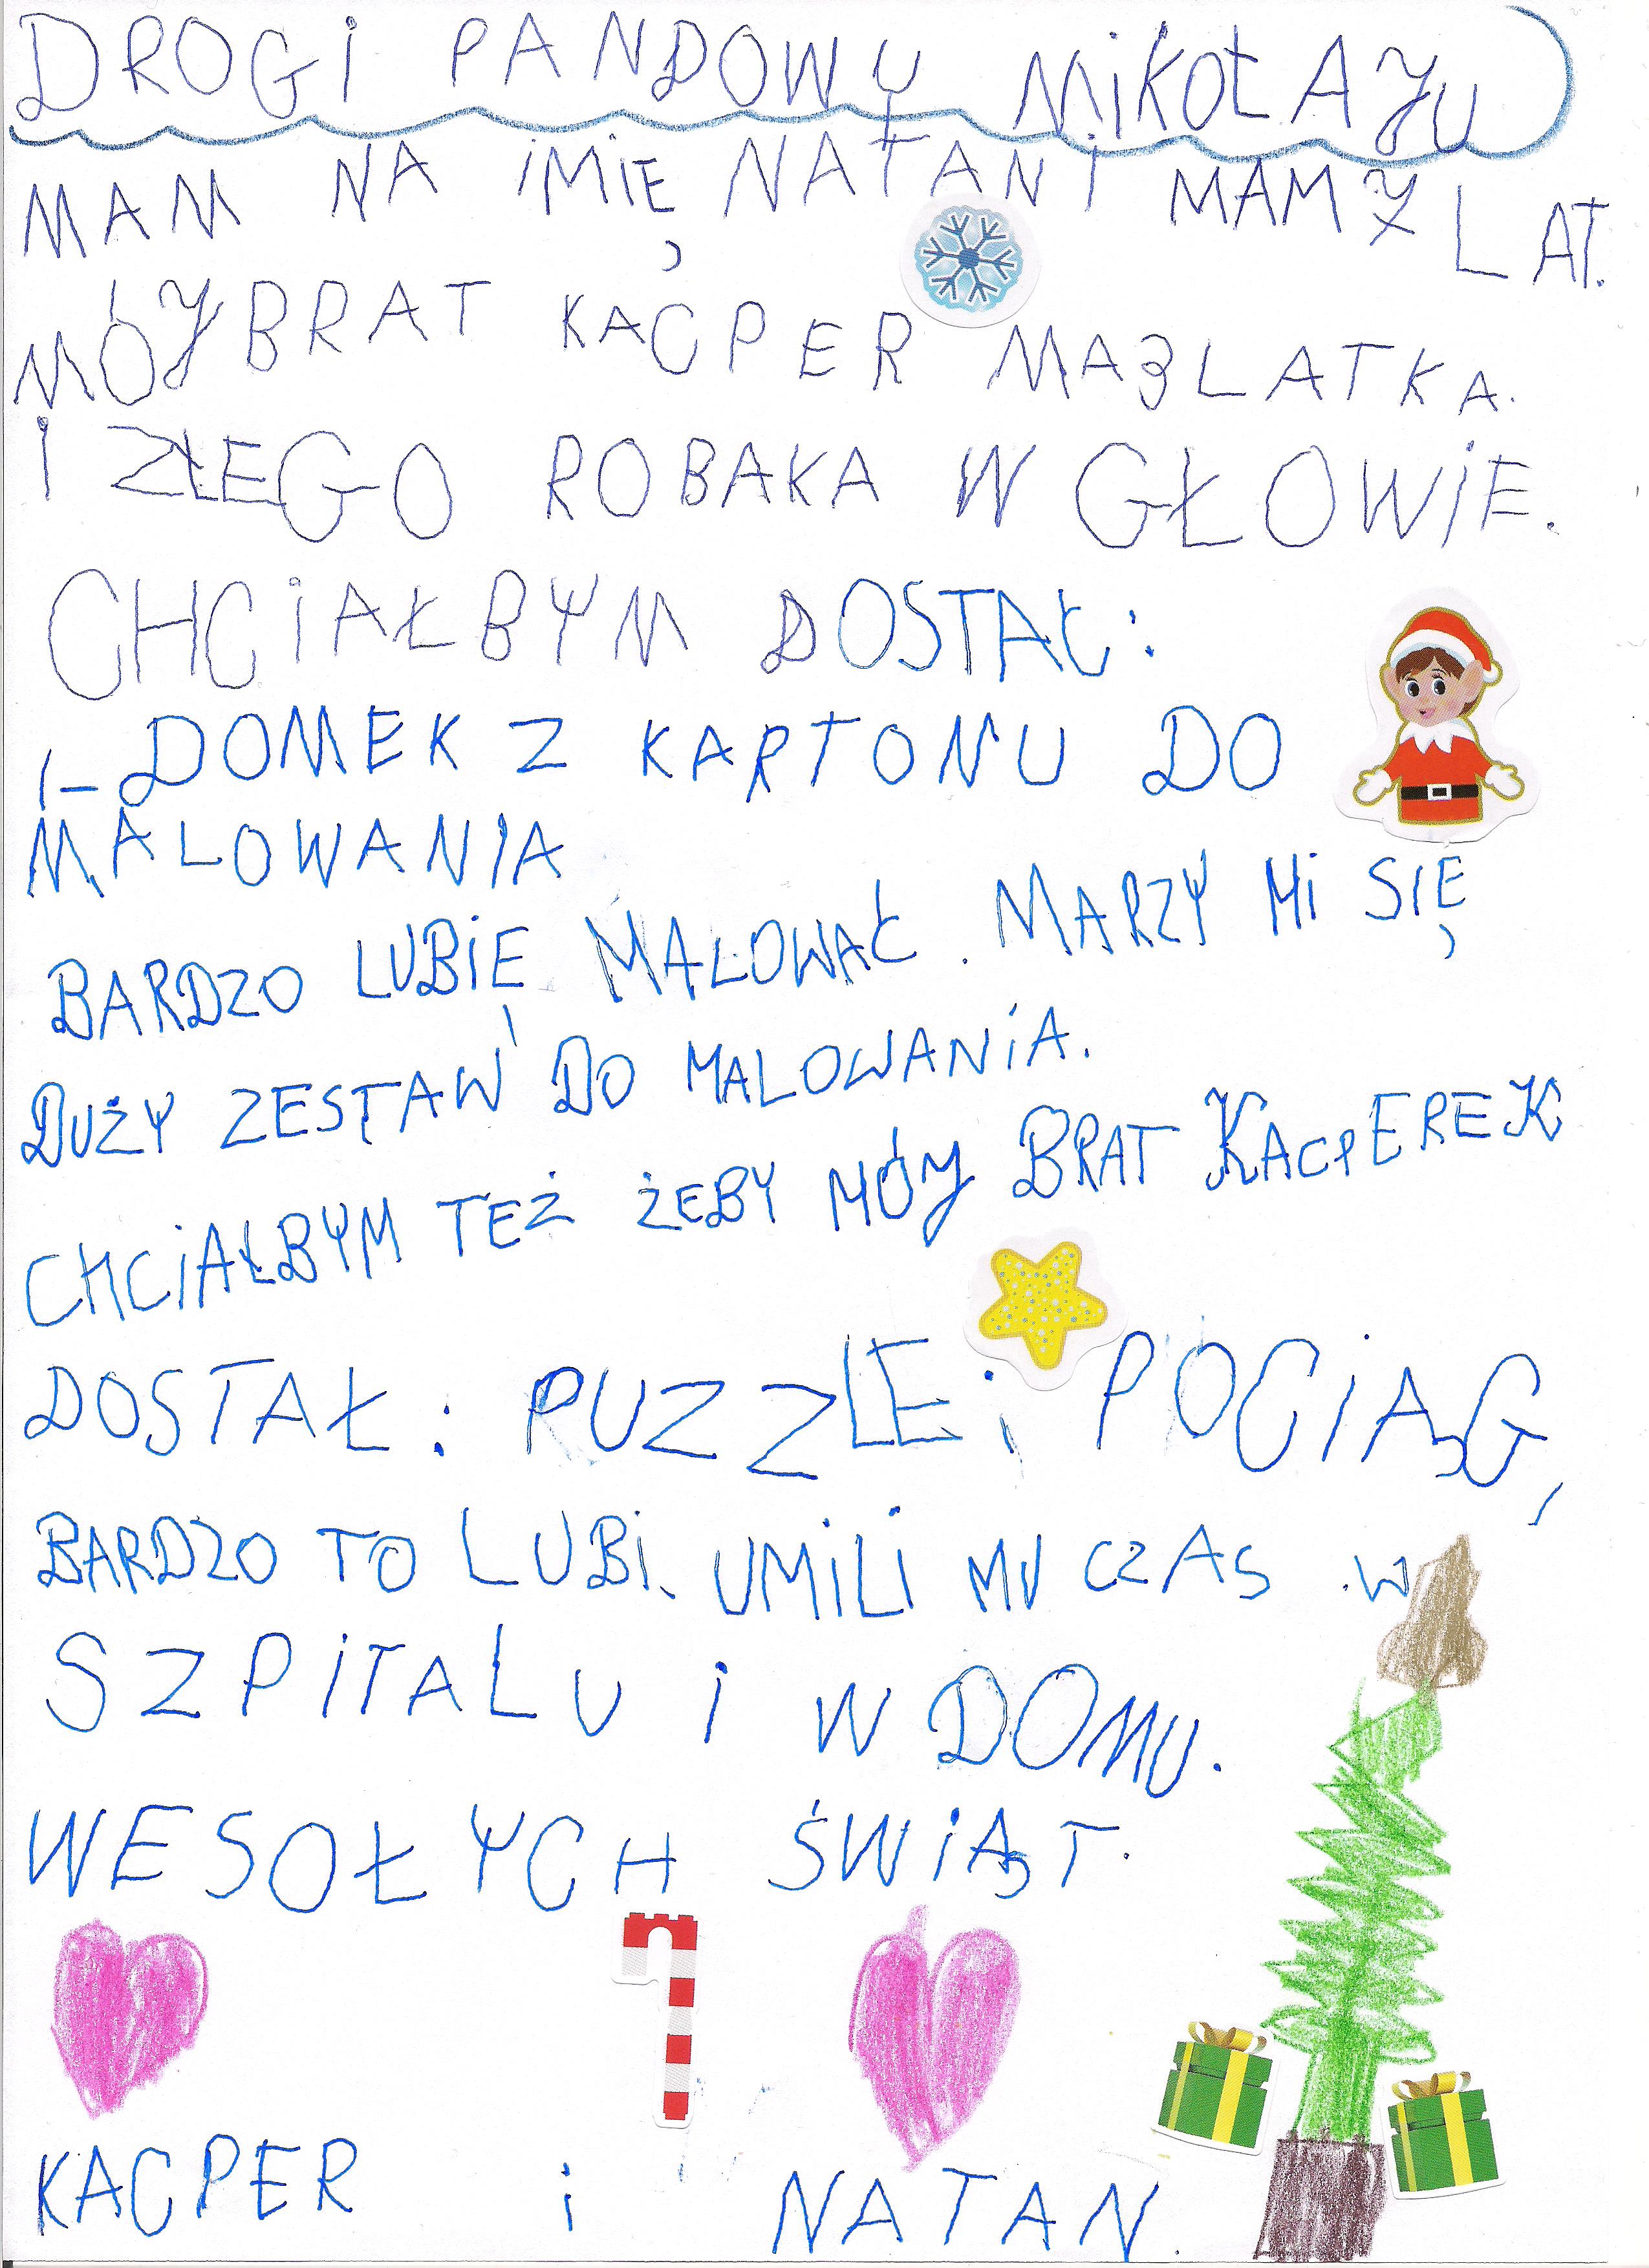 DROGI PANDOWY MIKOŁAJU
MAM NA IMIĘ NATAN I MAM 7 LAT.
MÓJ BRAT KACPER MA 3 LATKA.
I ZŁEGO ROBAKA W GŁOWIE.
CHCIAŁBYM DOSTAĆ:
1_ DOMEK Z KARTONU DO
MALOWANIA
BARDZO LUBIĘ MALOWAĆ. MARZY MI SIĘ
DUŻY ZESTAW DO MALOWANIA.
CHCIAŁBYM TEŻ ŻEBY MÓJ BRAT KACPEREK
DOSTAŁ: PUZZLE i POCIĄG,
BARDZO TO LUBI. UMILI MU CZAS W
SZPITALU I W DOMU.
WESOŁYCH ŚWIĄT.
KACPER i NATAN.